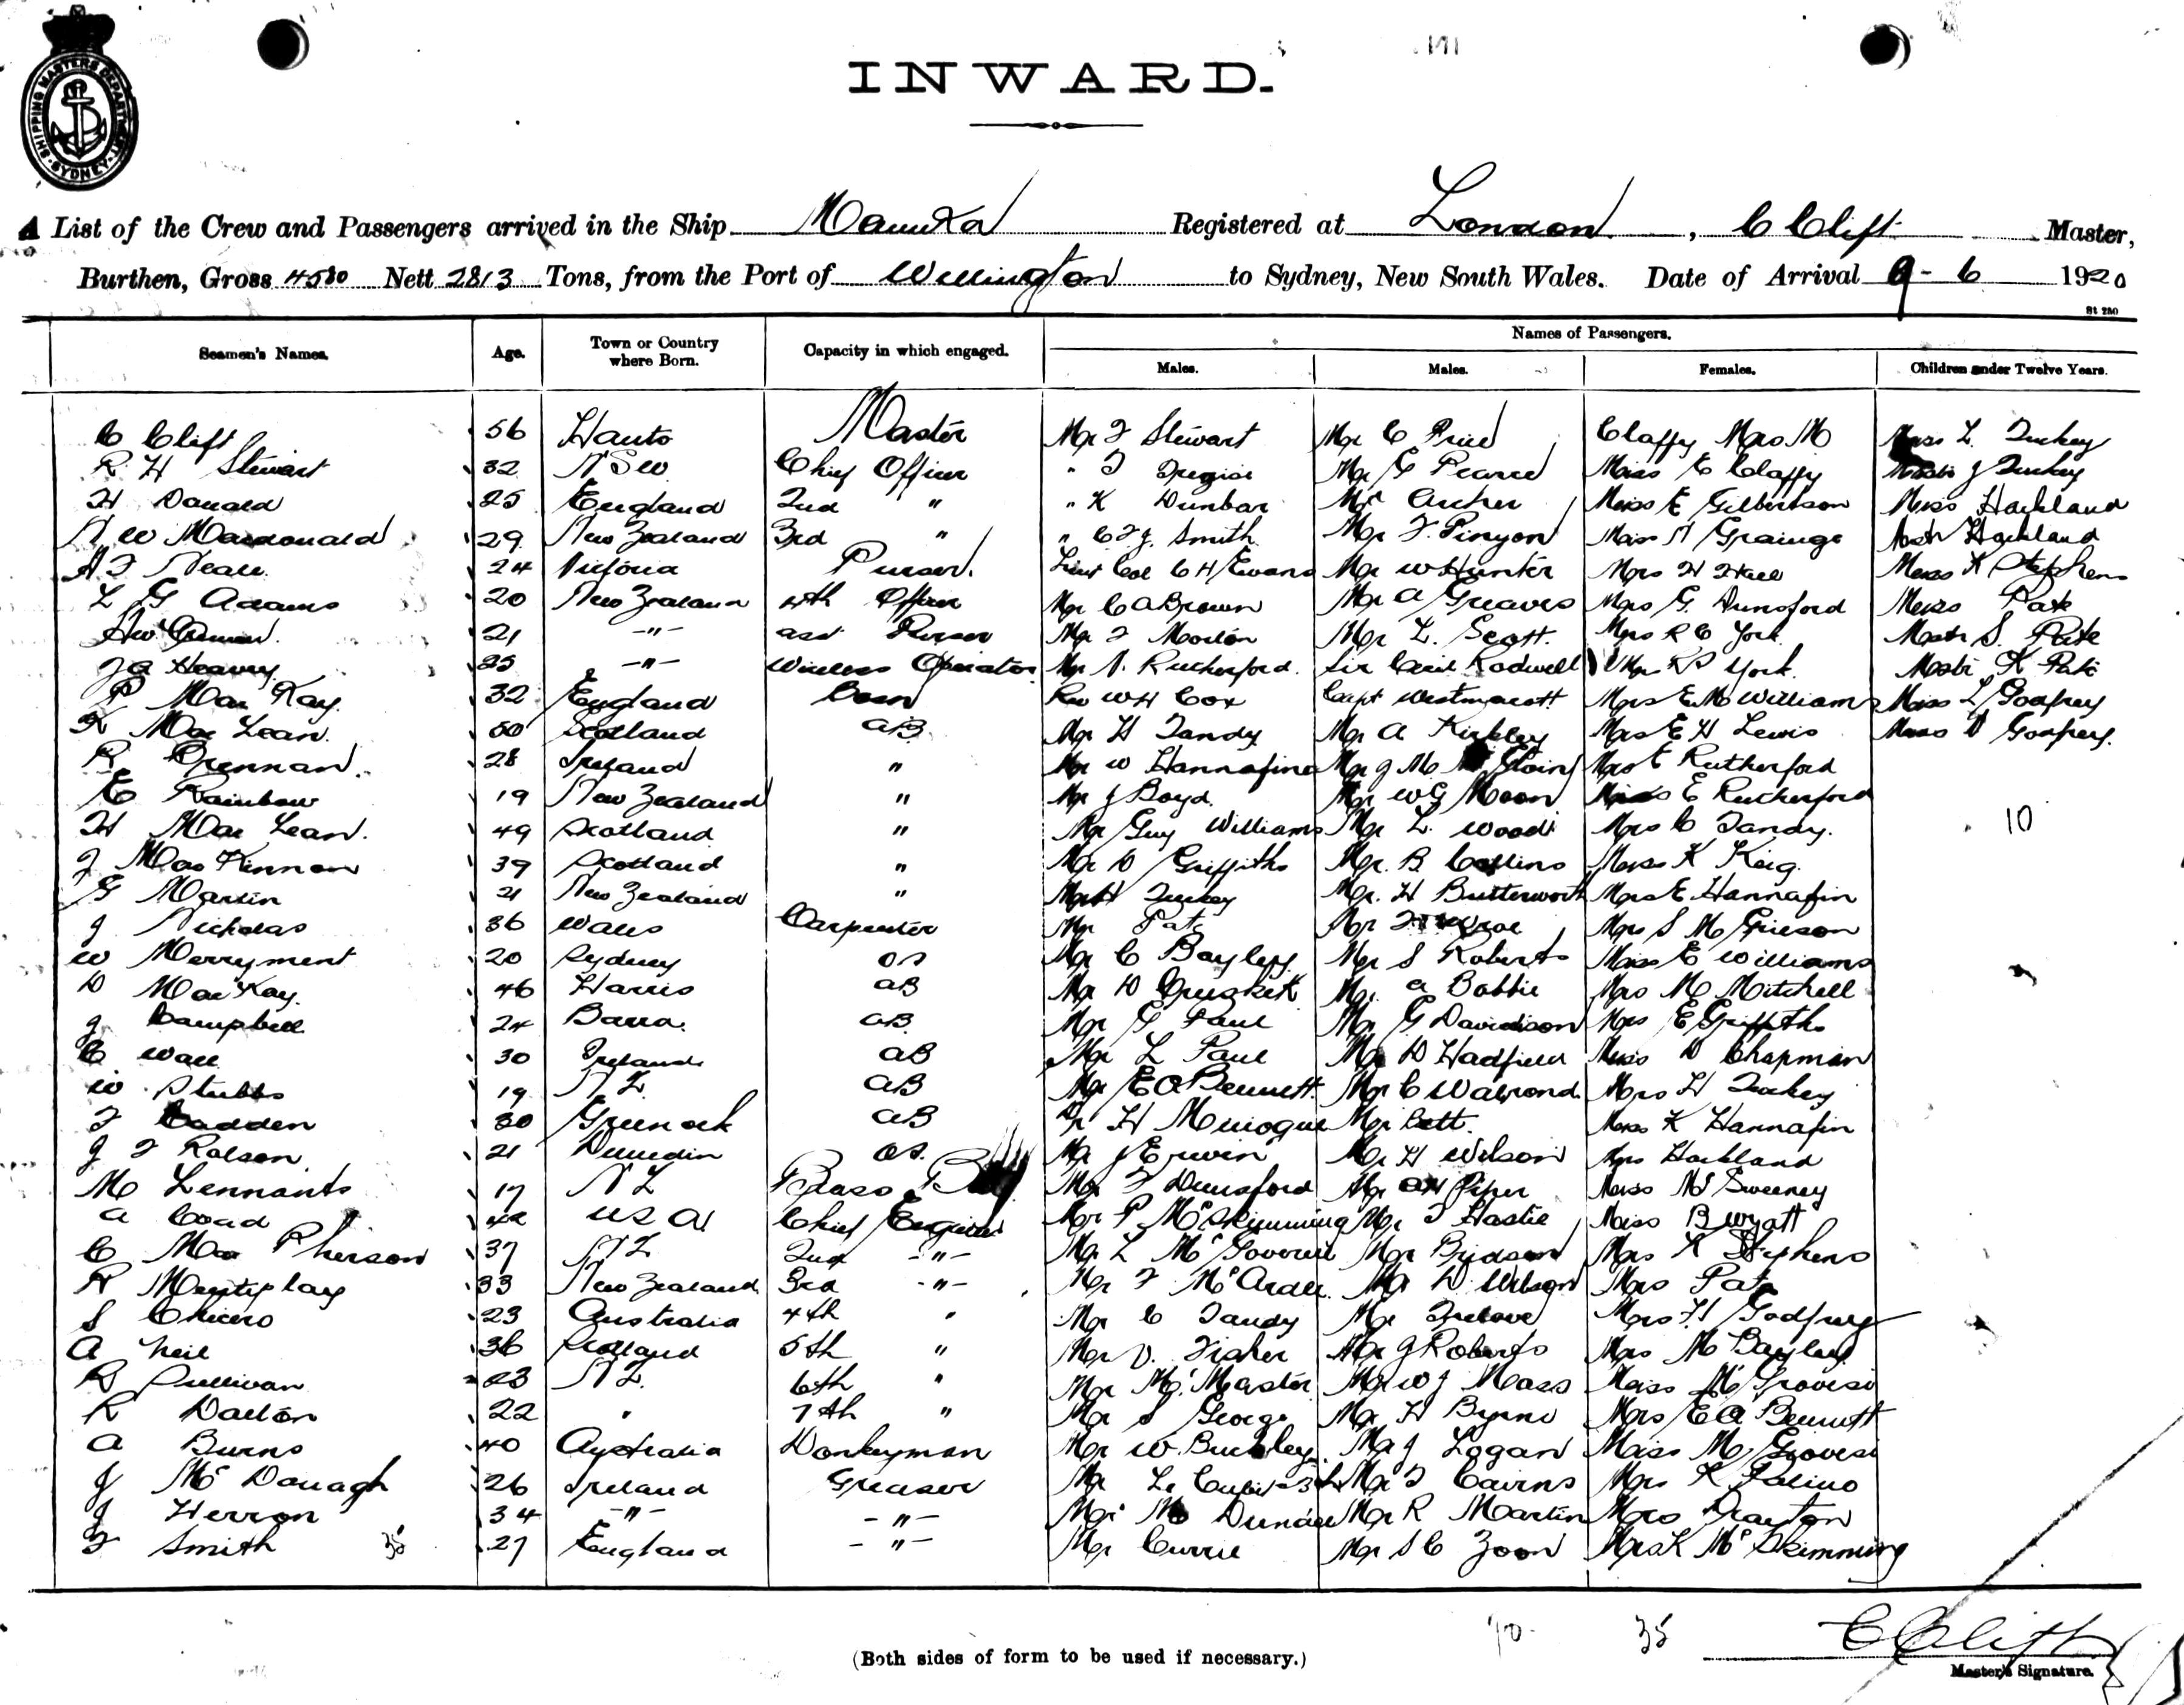 SHIPPING MASTERS DEPARTMENT SYDNEY
INWARD.
A List of the Crew and Passengers arrived in the Ship Manuka Registered at London, C Clift Master,
Burthen, Gross 4530 Nett 2813 Tons, from the Port of Wellington to Sydney, New South Wales. Date of Arrival 9-6 1920
St 280
Names of Passengers.
Seamen's Names. Age. Town or Country where Born. Capacity in which engaged. Males. Males. Females. Children under Twelve Years.
C Clift 56 Hants Master Mr F Stewart Mr C Price Claffy Mrs M Miss L. Tuckey
R. H Stewart 32 NSW Chief Officer " Mr G Pearce Miss E Claffy J Tuckey
H Donald 25 England 2nd " " K Dunbar Mr Archer Miss E Gilbertson Miss Hackland
N W Macdonald 29 New Zealand 3rd " " C F J. Smith Mr F. Pinyon Miss N Grainge Mastr Hackland
A F Neale 24 Victoria Purser. Lieut Col C H Evans Mr W Hunter Mrs H Hall Miss K Stephens
L G Adams 20 New Zealand 4th Officer Mr C A Brown Mr A Greaves Mrs G. Dunsford Miss Pate
21 -"- asst Purser Mr F Morton Mr L. Scott. Mrs R C York Mastr S. Pate
J G Heavey 25 -"- Wireless Operator Mr N. Rutherford. Sir Cecil Rodwell York. K Pate
P Mac Kay. 32 England Bosn Rev W H Cox Capt Westmacott Mrs E. M Williams Miss L Godfrey
K Mac Lean. 50 Scotland AB. Mr H Tandy Mr A Kirkley Mrs E H Lewis Miss D Godfrey.
R Brennan. 28 Ireland " Mr W Hannafin Mr J M. Mrs E Rutherford
E Rainbow 19 New Zealand " Mr J Boyd. Mr W G Moon Miss E Rutherford
H Mac Lean. 49 Scotland " Mr Guy Williams Mr L. Wood Mrs C Tandy. 10
J Mac Kinnon 39 Scotland " Mr D Griffiths Mr. B Collins Miss K Keig.
G Martin 21 New Zealand " Mr H Tuckey Mr. H Butterworth Mrs E Hannafin
J Nicholas 36 Wales Carpenter Mr Pate Mr Mrs S M Grieson
W Merryment 20 Sydney OS Mr C Bayley Mr S Roberts Miss E Williams
D Mac Kay. 46 Harris AB Mr D Mr. A Bobbie Mrs M Mitchell
J Campbell 24 Barra. AB. Mr G Paul Mr G Davidson Mrs E Griffiths
C Wall 30 Ireland AB Mr L Paul Mr D Hadfield Miss D Chapman
W Stubbs 19 N Z. AB Mr E A Bennett. Mr C Walrond. Mrs H Tuckey
F Cadden 30 Greenock AB Dr H Minogue Mr Bett. Miss K Hannafin
J F Rolson 21 Dunedin OS. Mr J Erwin Mr H Wilson Mrs Hackland
M Lennants 17 N Z Brass Boy Mr F Dunsford Mr Piper Miss M Sweeney
A Coad 42 USA Chief Engineer Mr P McSkimming Mr J Hastie Miss B Wyatt
C Mac Pherson 37 N Z 2nd -"- Mr L McGovern Mr Bridson Mrs K Stephens
R Mentiplay 33 New Zealand 3rd -"- Mr F McArdle. Mr D. Wilson Mrs Pate
S Chicero 23 Australia 4th " Mr C Tandy Mr Trelove Mrs H Godfrey
A Neil 36 Scotland 5th " Mr V. Fisher Mr J Roberts Mrs M Bayley
R Sullivan 23 N Z. 6th " Mr McMaster Mr W J Mass Miss M
R Dalton 22 " 7th " Mr S George Mr H Byrne Mrs E A Bennett
A Burns 40 Australia Donkeyman Mr W. Buckley Mr J Logan Miss M
J McDonagh 26 Ireland Greaser Mr Le Mr J Cairns Mrs K Salino
J Herron 34 -"- -"- Mr Mr R Martin Mrs Drayton
F Smith 35 27 England -"- Mr Currie Mr S C Zoon Mrs K McSkimming
70 35
C Clift
(Both sides of form to be used if necessary.)
Master's Signature.